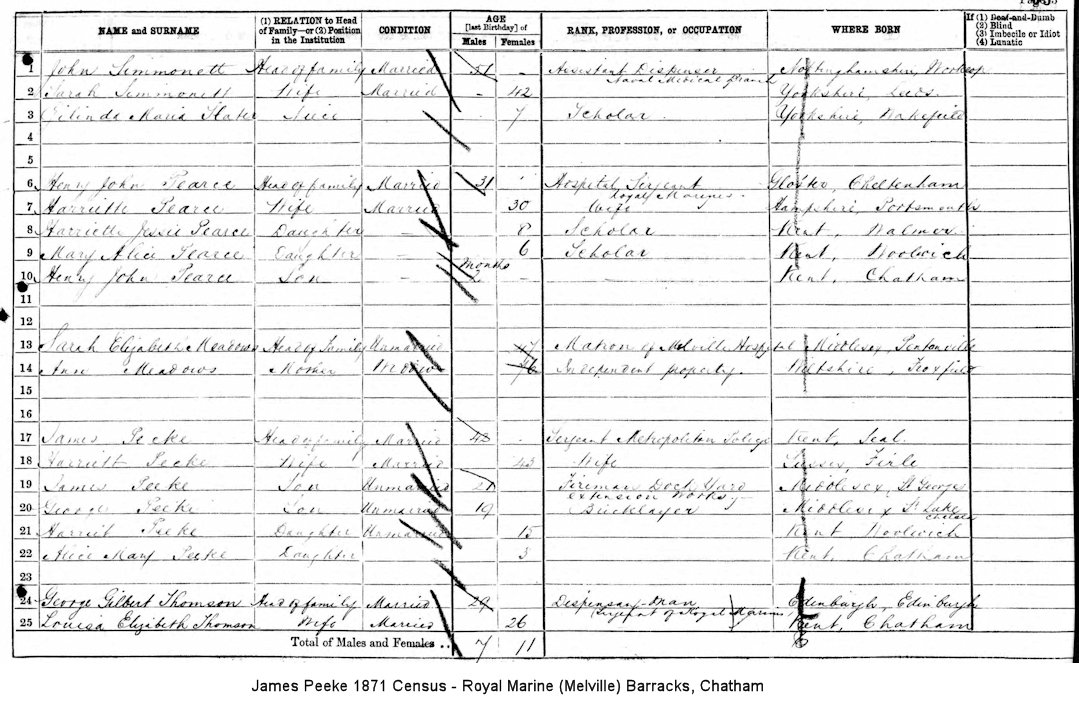 Page 3
NAME and SURNAME (1) RELATION to Head of Family—or (2) Position in the Institution CONDITION AGE [last Birthday] of Males Females RANK, PROFESSION, or OCCUPATION WHERE BORN If (1) Deaf-and-Dumb (2) Blind (3) Imbecile or Idiot (4) Lunatic
1 John Simmonett Head of family Married 51 - Assistant Dispenser Naval Medical Branch Nottinghamshire, Worksop
2 Sarah Simmonett Wife Married - 42 Yorkshire, Leeds
3 Maria Slater Niece 7 Scholar Yorkshire, Wakefield
4
5
6 Henry John Pearce Head of family Married 31 Hospital Sergeant Royal Marines Gloster, Cheltenham
7 Harriette Pearce Wife Married 30 Wife Hampshire Portsmouth
8 Harriette Jessie Pearce Daughter - 8 Scholar Kent, Walmer
9 Mary Alice Pearce Daughter - 6 Scholar Kent, Woolwich
10 Henry John Pearce Son - Months 2 - Kent, Chatham
11
12
13 Sarah Elizabeth Meadows Head of Family Unmarried 47 Matron of Melville Hospital Middlesex, Pentonville
14 Ann Meadows Mother Widow 76 Independent property. Wiltshire, Froxfield
15
16
17 James Peeke Head of family Married 42 - Sergeant Metropolitan Police Kent, Seal
18 Harriett Peeke Wife Married 43 Wife Sussex, Firle
19 James Peeke Son Unmarried 21 Fireman Dock Yard extension Works Middlesex, St Georges
20 George Peeke Son Unmarried 19 Bricklayer Middlesex St Luke Chelsea
21 Harriet Peeke Daughter Unmarried 15 Kent Woolwich
22 Alice Mary Peeke Daughter 3 Kent, Chatham
23
24 George Gilbert Thomson Head of family Married 29 Dispensary-Man Sergeant of Royal Marines Edinburgh, Edinburgh
25 Louisa Elizabeth Thomson Wife Married 26 Kent, Chatham
Total of Males and Females .. 7 11
James Peeke 1871 Census - Royal Marine (Melville) Barracks, Chatham